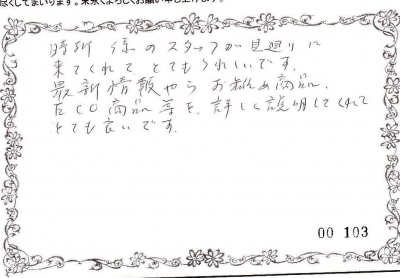 尽くしてまいります。末永くよろしくお願い申し上げます。
様のスタッフが見廻りに
来てくれて とてもうれしいです。
最新情報やら お勧め商品、
ECO商品等を、詳しく説明してくれて
とても良いです。
00 103